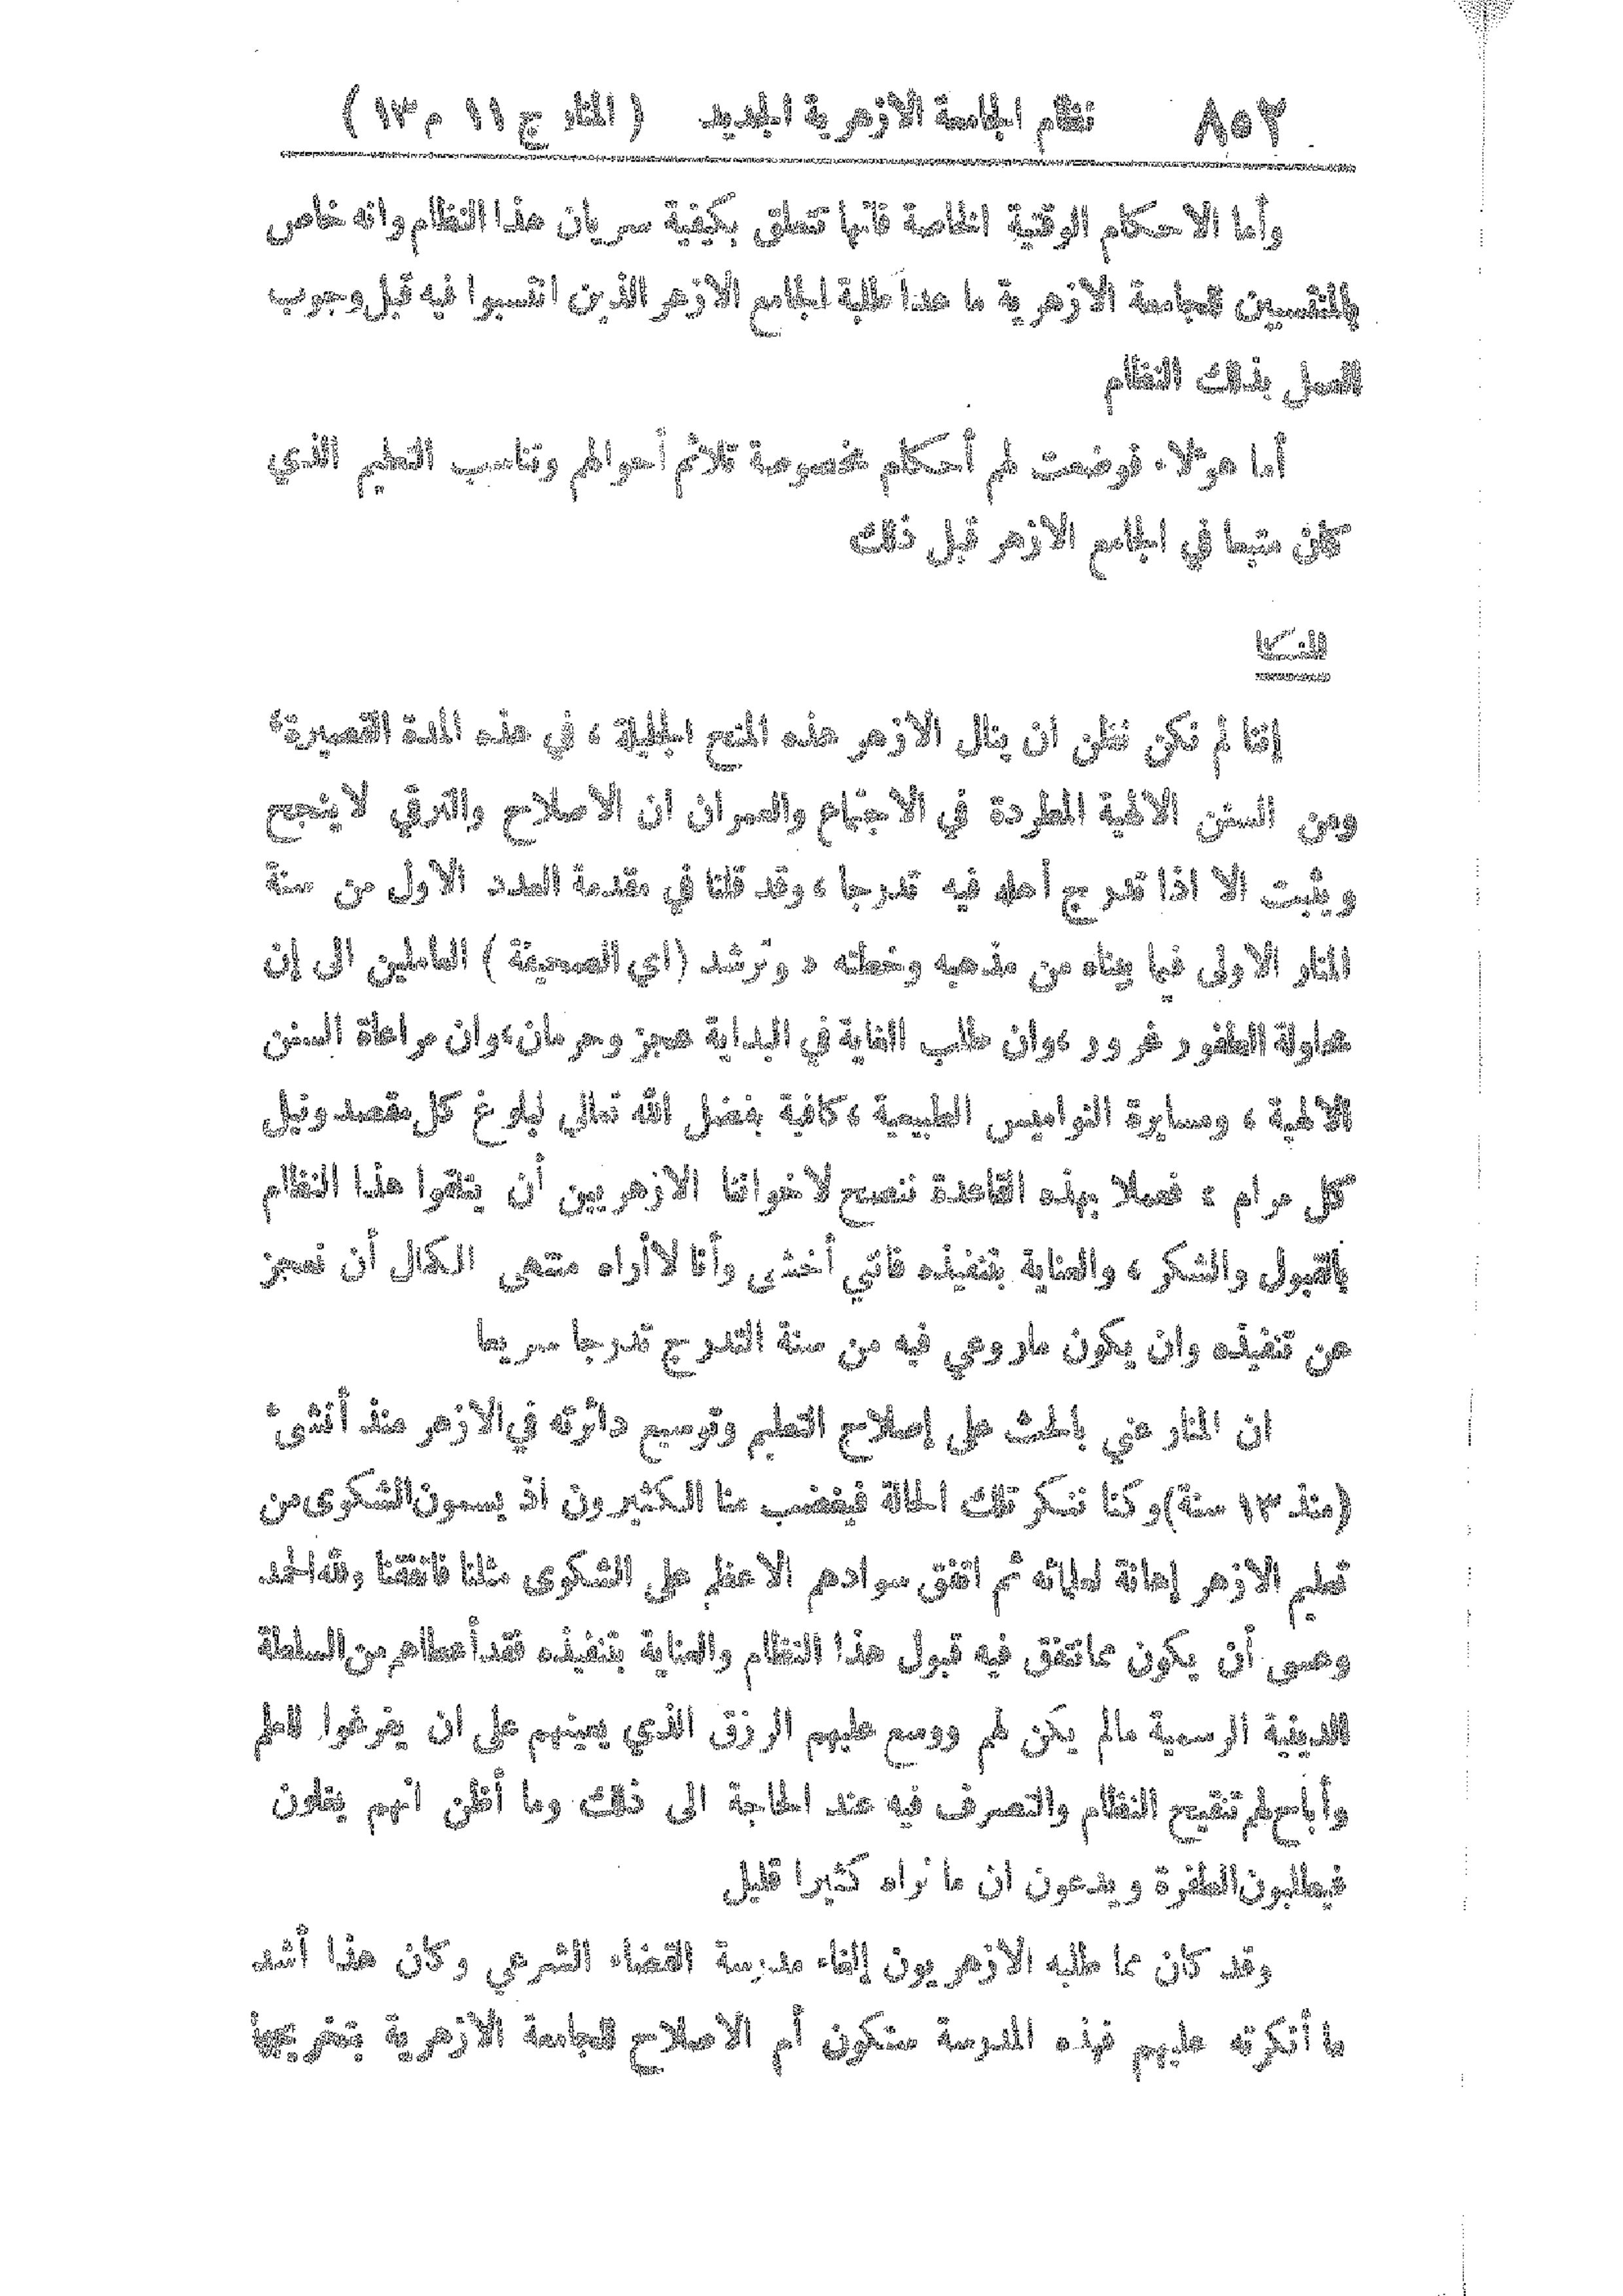 ٨٥٢ نظام الجامعة الازهرية الجديد ( المنار ج ١١ م ١٣ )
وأما الاحكام الوقتية الخاصة فانها تتعلق بكيفية سريان هذا النظام وانه خاص
بالمنتسبين للجامعة الازهرية ما عدا طلبة الجامع الازهر الذين انتسبوا فيه قبل وجوب
العمل بذلك النظام
أما هؤلاء فوضعت لهم أحكام مخصوصة تلائم أحوالهم وتناسب التعليم الذي
كان متبعا في الجامع الازهر قبل ذلك
إننا لم نكن نظن ان ينال الازهر هذه المنح الجليلة ، في هذه المدة القصيرة ،
ومن السنن الالهية المطردة في الاجتماع والعمران ان الاصلاح والترقي لا ينجح
ويثبت الا اذا تدرج أهله فيه تدرجا ، وقد قلنا في مقدمة العدد الاول من سنة
المنار الاولى فيما بيناه من مذهبه وخطته « وترشد ( اي الصحيفة ) العاملين الى إن
محاولة الطفور غرور ، وان طلب الغاية في البداية عجز وحرمان ، وان مراعاة السنن
الالهية ، ومسايرة النواميس الطبيعية ، كافية بفضل الله تعالى لبلوغ كل مقصد ونيل
كل مرام » فعملا بهذه القاعدة ننصح لاخواننا الازهريين أن يتلقوا هذا النظام
بالقبول والشكر ، والعناية بتنفيذه فانني أخشى وأنا لا أراه منتهى الكمال أن نعجز
عن تنفيذه وان يكون ما روعي فيه من سنة التدرج تدرجا سريعا
ان المنار عني بالحث على إصلاح التعليم وتوسيع دائرته في الازهر منذ أنشئ
(منذ ١٣ سنة) وكنا ننكر تلك الحالة فيغضب منا الكثيرون اذ يسمون الشكوى من
تعليم الازهر إهانة لعلمائه ثم اتفق سوادهم الاعظم على الشكوى مثلنا فاتفقنا ولله الحمد
وعسى أن يكون مما نتفق فيه قبول هذا النظام والعناية بتنفيذه فقد أعطاهم من السلطة
الدينية الرسمية مالم يكن لهم ووسع عليهم الرزق الذي يعينهم على ان يفرغوا للعلم
وأباح لهم تنقيح النظام والتصرف فيه عند الحاجة الى ذلك وما أظن انهم يغلون
فيطلبون الطفرة ويدعون ان ما نراه كثيرا قليل
وقد كان مما طلبه الازهريون إلغاء مدرسة القضاء الشرعي وكان هذا أشد
ما أنكرته عليهم فهذه المدرسة ستكون أم الاصلاح للجامعة الازهرية بتخريجها